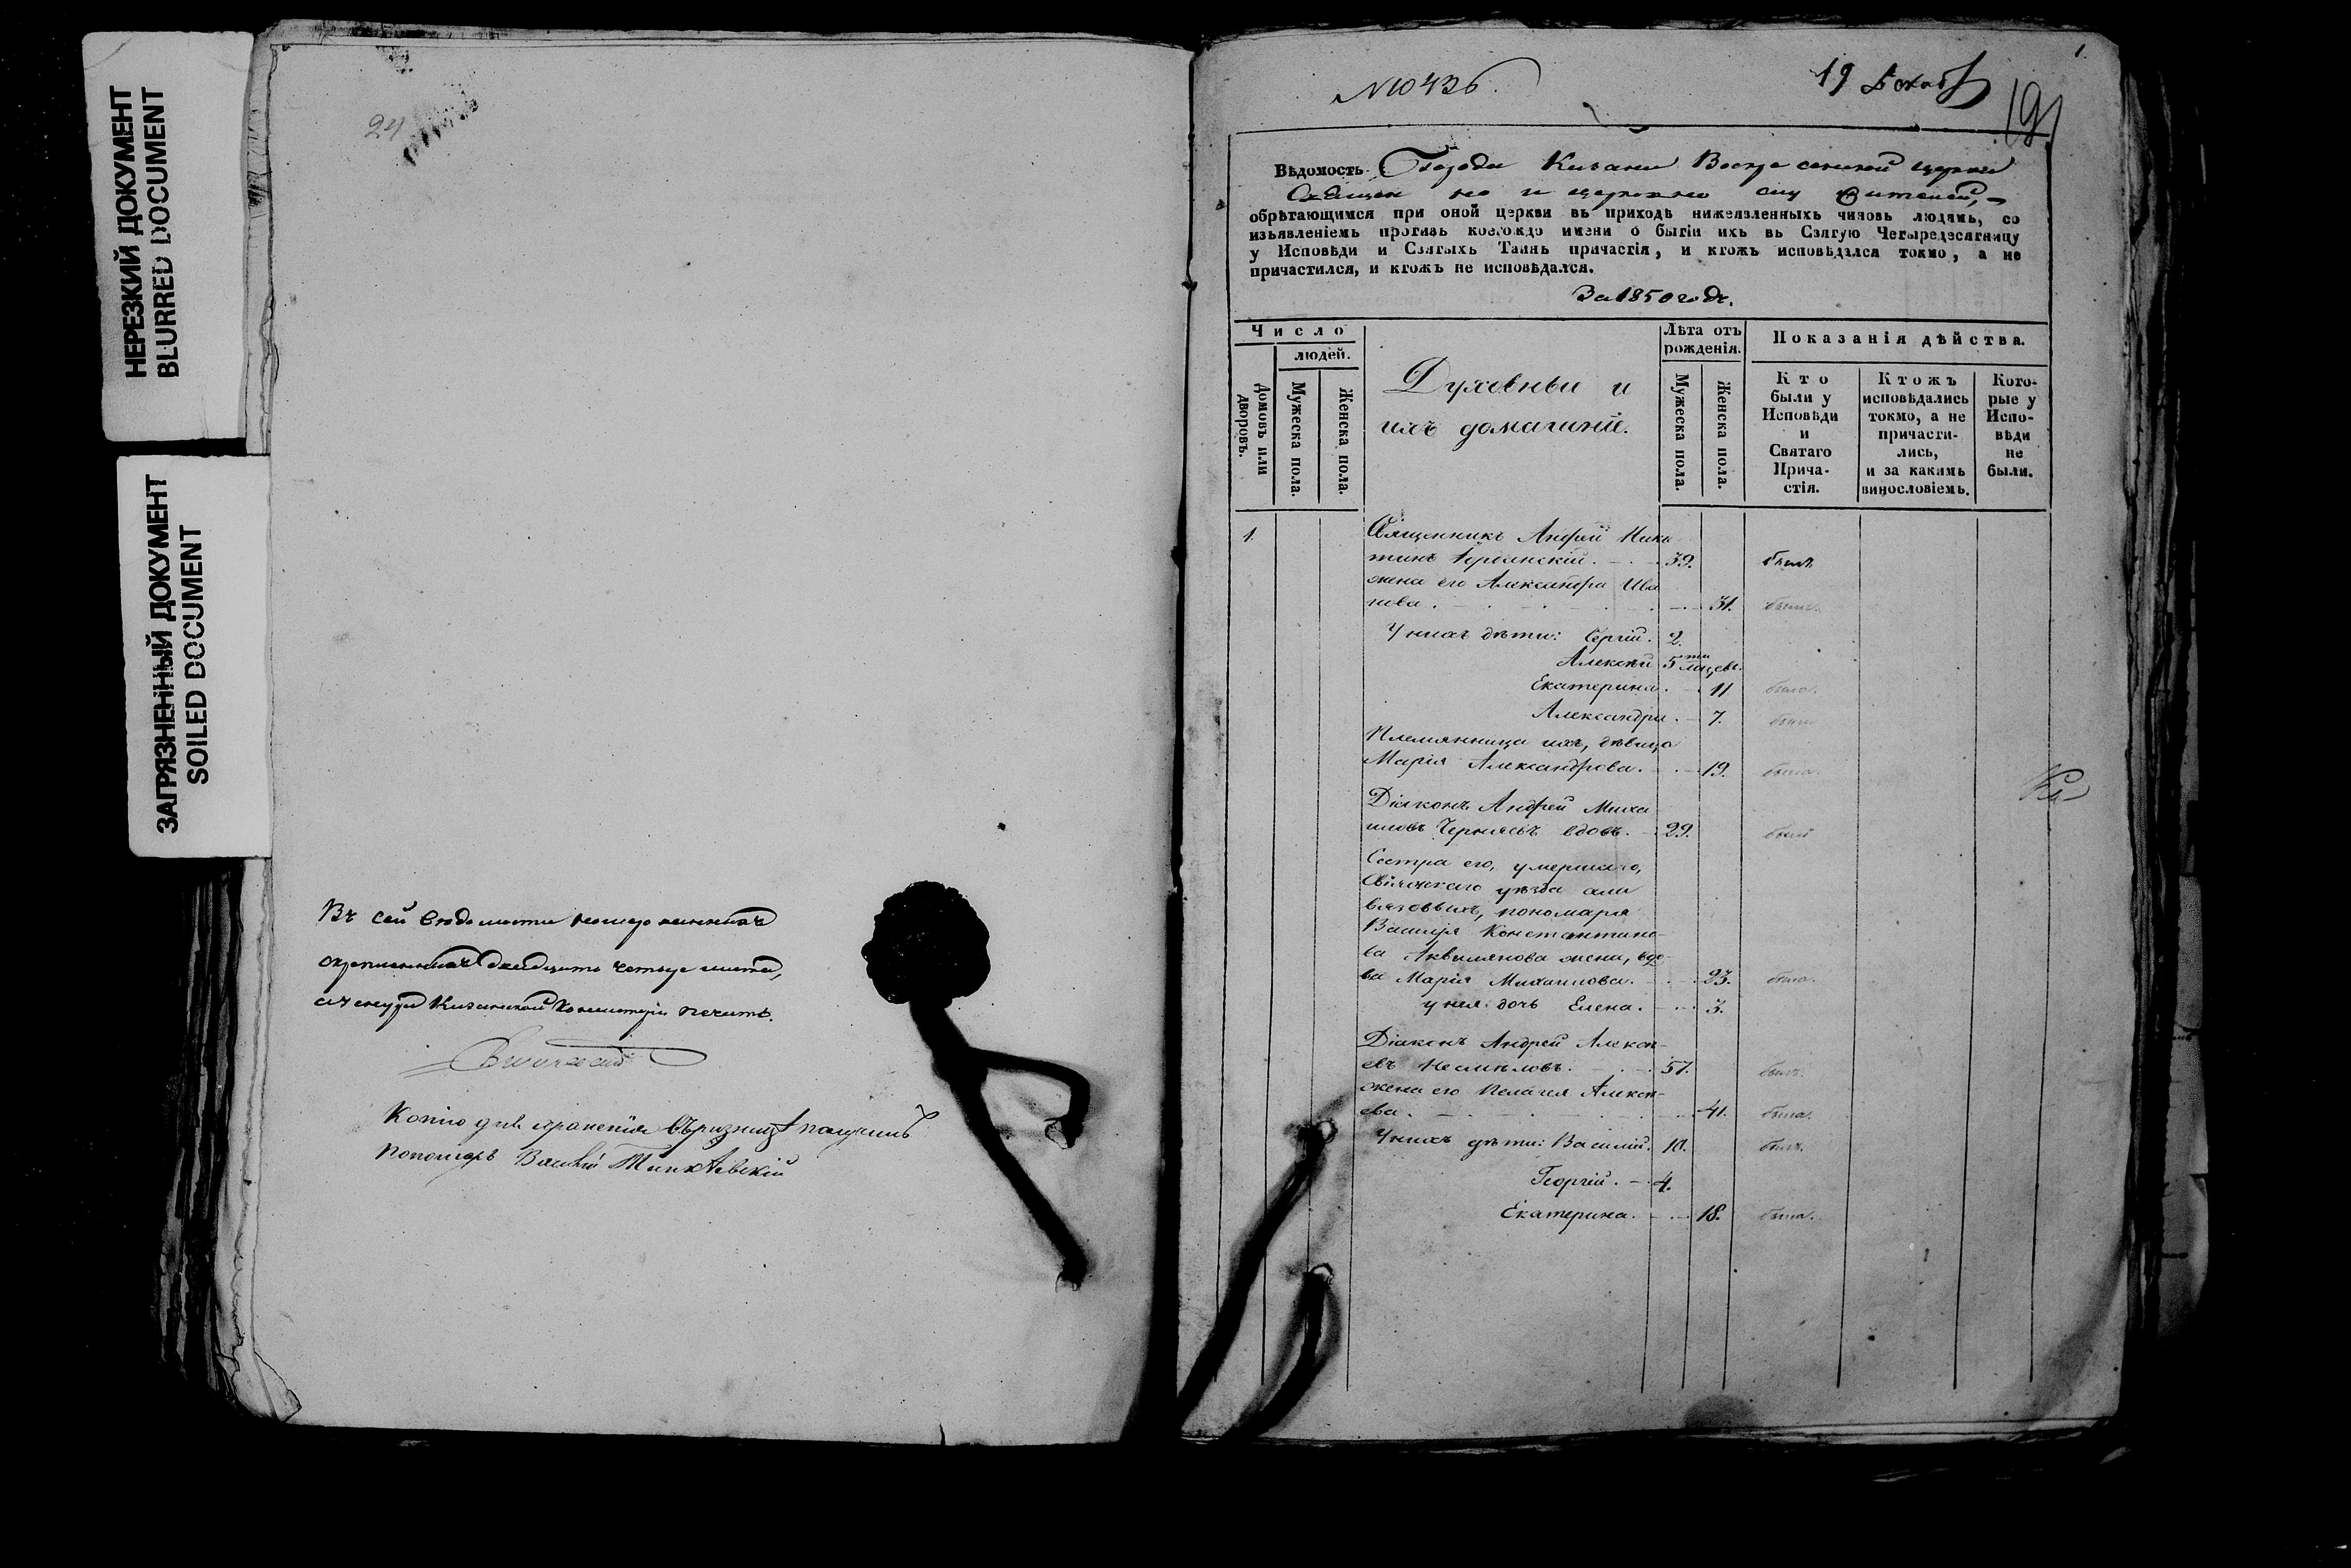 НЕРЕЗКИЙ ДОКУМЕНТ
BLURRED DOCUMENT
ЗАГРЯЗНЕННЫЙ ДОКУМЕНТ
SOILED DOCUMENT
24
Въ сей вѣдомости
двадцать четыре листа,
Казанской Консисторіи печать.
Копію для храненія въ ризницѣ получилъ
пономарь Василій
1
19
191
Вѣдомость Города Казани Воскресенской церкви
обрѣтающимся при оной церкви въ приходѣ нижеявленныхъ чиновъ людямъ, со
изъявленіемъ противъ коегождо имени о бытіи ихъ въ Святую Четыредесятницу
у Исповѣди и Святыхъ Таинъ причастія, и ктожъ исповѣдался токмо, а не
причастился, и ктожъ не исповѣдался.
За 1850 годъ.
Число
людей.
Домовъ или дворовъ.
Мужеска пола.
Женска пола.
Духовныи и
ихъ домашніе.
Лѣта отъ
рожденія.
Мужеска пола.
Женска пола.
Показанія дѣйства.
Кто
были у
Исповѣди
и
Святаго
Прича-
стія.
Ктожъ
исповѣдались
токмо, а не
причасти-
лись,
и за какимъ
винословіемъ.
Кото-
рые у
Испо-
вѣди
не
были.
1. Священникъ Андрей Ники
тинъ 39. былъ
жена его Александра Ива
нова. 31. была.
У нихъ дѣти: Сергій. 2.
Алексѣй 5ти мѣсяц.
Екатерина. 11 была.
Александра. 7. была
Племянница ихъ, дѣвица
Марія Александрова. 19. была.
Діаконъ Андрей Миха
иловъ Черняевъ вдовъ. 29. былъ
Сестра его, умершаго,
Свіяжскаго уѣзда
пономаря
Василія Константино
ва жена, вдо-
ва Марія Михаилова. 23. была.
у нея дочь Елена. 3.
Діаконъ Андрей Алексѣ-
евъ Несмѣловъ. 57. былъ.
жена его Пелагея Алексѣ-
ева. 41. была.
У нихъ дѣти: Василій. 10. былъ.
Георгій. 4.
Екатерина. 18. была.